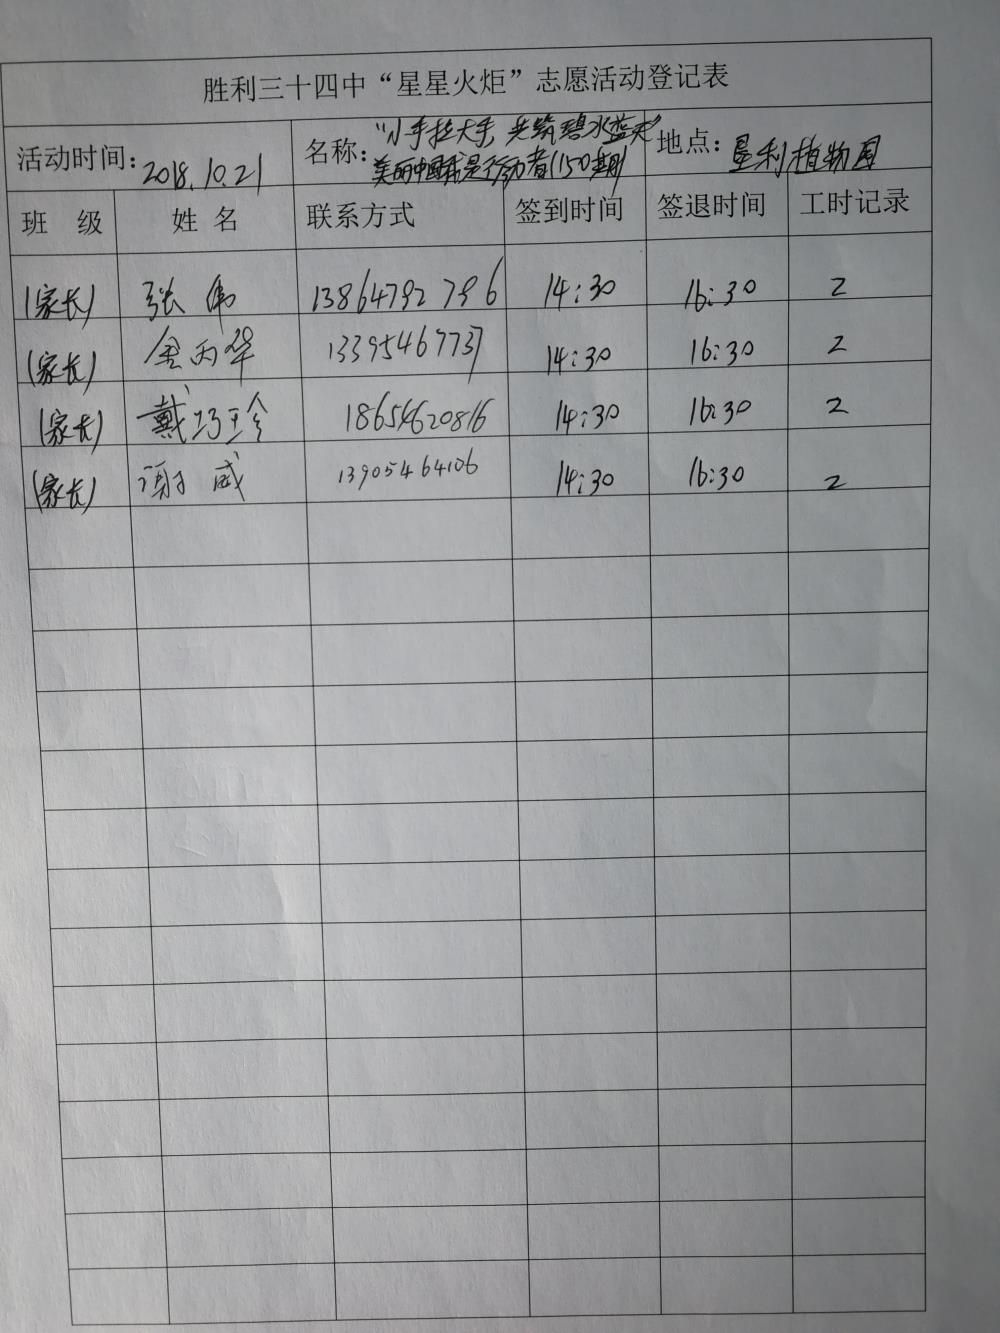 胜利三十四中“星星火炬”志愿活动登记表
活动时间：2018.10.21 名称：“小手拉大手，共筑碧水蓝天” 美丽中国我是行动者（150期） 地点：垦利植物园
班 级 姓 名 联系方式 签到时间 签退时间 工时记录
（家长） 张伟 13864792796 14:30 16:30 2
（家长） 金丙华 13395467737 14:30 16:30 2
（家长） 戴巧玲 18654620816 14:30 16:30 2
（家长） 谢威 13905464106 14:30 16:30 2